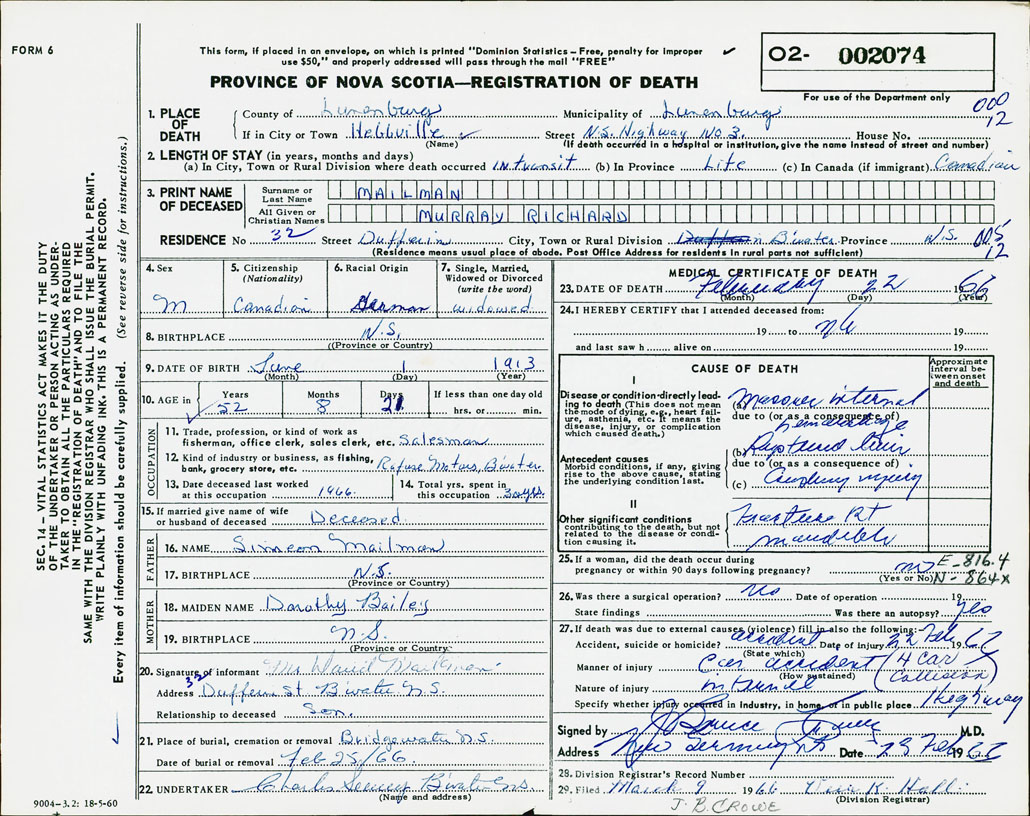 FORM 6
This form, if placed in an envelope, on which is printed "Dominion Statistics – Free, penalty for improper
use $50," and properly addressed will pass through the mail "FREE"
✓
02- 002074
For use of the Department only
PROVINCE OF NOVA SCOTIA—REGISTRATION OF DEATH
000
12
SEC. 14 – VITAL STATISTICS ACT MAKES IT THE DUTY
OF THE UNDERTAKER OR PERSON ACTING AS UNDER-
TAKER TO OBTAIN ALL THE PARTICULARS REQUIRED
IN THE "REGISTRATION OF DEATH" AND TO FILE THE
SAME WITH THE DIVISION REGISTRAR WHO SHALL ISSUE THE BURIAL PERMIT.
WRITE PLAINLY WITH UNFADING INK. THIS IS A PERMANENT RECORD.
Every item of information should be carefully supplied. (See reverse side for instructions.)
1. PLACE OF DEATH
County of Lunenburg Municipality of Lunenburg
If in City or Town Hebbville ✓ Street N.S. Highway No 3. House No.
(Name) (If death occurred in a hospital or institution, give the name instead of street and number)
2. LENGTH OF STAY (in years, months and days)
(a) In City, Town or Rural Division where death occurred in transit (b) In Province Life (c) In Canada (if immigrant) Canadian
3. PRINT NAME OF DECEASED
Surname or Last Name MAILMAN
All Given or Christian Names MURRAY RICHARD
RESIDENCE No 32 Street Dufferin City, Town or Rural Division B'water Province N.S. 005
12
(Residence means usual place of abode. Post Office Address for residents in rural parts not sufficient)
4. Sex M
5. Citizenship (Nationality) Canadian
6. Racial Origin German
7. Single, Married, Widowed or Divorced (write the word) widowed
8. BIRTHPLACE N.S.
((Province or Country)
9. DATE OF BIRTH June 1 1913
(Month) (Day) (Year)
10. AGE in Years Months Days If less than one day old
✓ 52 8 21 hrs. or min.
OCCUPATION
11. Trade, profession, or kind of work as
fisherman, office clerk, sales clerk, etc. Salesman
12. Kind of industry or business, as fishing,
bank, grocery store, etc. Motors, B'water
13. Date deceased last worked at this occupation 1966.
14. Total yrs. spent in this occupation 30 yrs.
15. If married give name of wife
or husband of deceased Deceased.
FATHER
16. NAME Simeon Mailman
17. BIRTHPLACE N.S.
(Province or Country)
MOTHER
18. MAIDEN NAME Dorothy Bailey
19. BIRTHPLACE N.S.
(Province or Country)
20. Signature of informant Mr. David Mailman
Address 32 Dufferin St B'water N.S.
Relationship to deceased Son.
21. Place of burial, cremation or removal Bridgewater N.S.
Date of burial or removal Feb 25/66.
22. UNDERTAKER Charles B'water N.S.
(Name and address)
9004–3.2: 18-5-60
MEDICAL CERTIFICATE OF DEATH
23. DATE OF DEATH February 22 1966
(Month) (Day) (Year)
24. I HEREBY CERTIFY that I attended deceased from:
19 to NA 19
and last saw h alive on 19
CAUSE OF DEATH
Approximate interval between onset and death
I
Disease or condition directly lead-
ing to death (This does not mean
the mode of dying, e.g., heart fail-
ure, asthenia, etc. It means the
disease, injury, or complication
which caused death.)
(a) Massive internal
due to (or as a consequence of)
hemorrhage
Antecedent causes
Morbid conditions, if any, giving
rise to the above cause, stating
the underlying condition last.
(b) Ruptured liver
due to (or as a consequence of)
(c) Crushing injury
II
Other significant conditions
contributing to the death, but not
related to the disease or condi-
tion causing it.
Fracture Rt
mandible
25. If a woman, did the death occur during
pregnancy or within 90 days following pregnancy? no
(Yes or No)
E-816.4
N-864x
26. Was there a surgical operation? No Date of operation 19
State findings Was there an autopsy? Yes
27. If death was due to external causes (violence) fill in also the following:–
Accident, suicide or homicide? accident Date of injury 22 Feb 1966
(State which)
Manner of injury Car accident (4 car collision)
(How sustained)
Nature of injury internal
Specify whether injury occurred in industry, in home, or in public place highway
Signed by M.D.
Address Date 23 Feb 1966
28. Division Registrar's Record Number
29. Filed March 9 1966
(Division Registrar)
J. B. CROWE